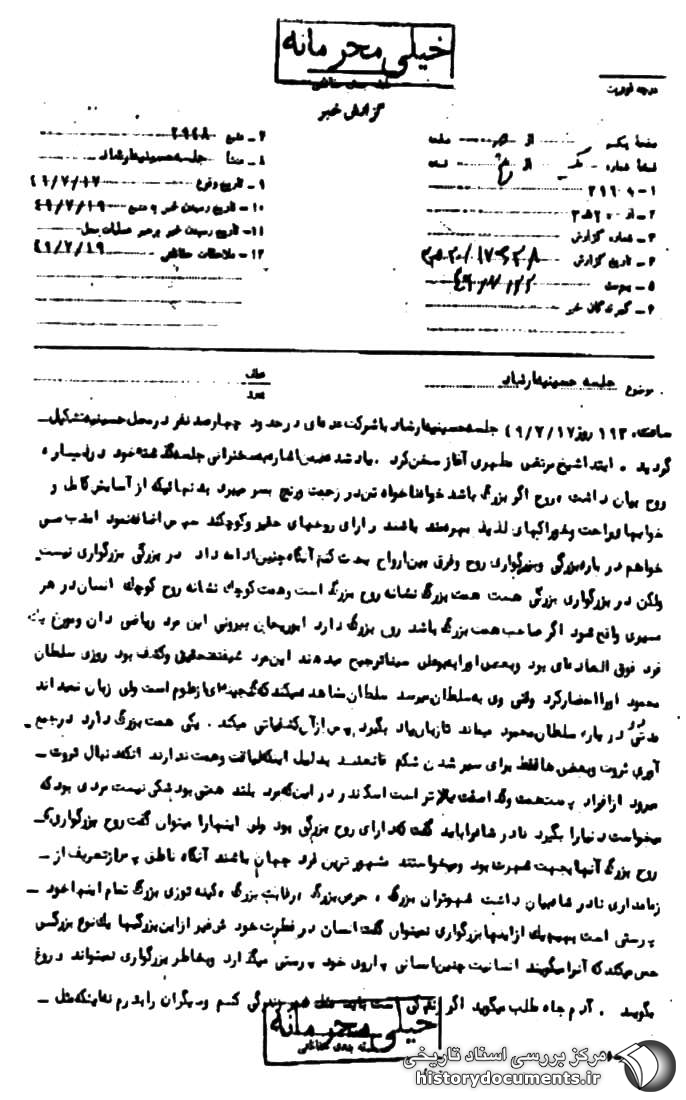 خیلی محرمانه
طبقه بندی حفاظتی
گزارش خبر
درجه فوریت
صفحه یکم از صفحه
نسخه شماره از نسخه
۱ـ به
۲ـ از
۳ـ شماره گزارش
۴ـ تاریخ گزارش
۵ـ پیوست
۶ـ گیرندگان خبر
۷ـ منبع ۲۹۴۸
۸ـ منشأ جلسه حسینیه ارشاد
۹ـ تاریخ وقوع ۴۹/۷/۱۷
۱۰ـ تاریخ رسیدن خبر به منبع ۴۹/۷/۱۹
۱۱ـ تاریخ رسیدن خبر برهبر عملیات محل
۱۲ـ ملاحظات حفاظتی ۴۹/۷/۱۹
موضوع جلسه حسینیه ارشاد
عطف
پیرو
ساعت روز ۴۹/۷/۱۷ جلسه حسینیه ارشاد با شرکت عده‌ای در حدود چهارصد نفر در محل حسینیه تشکیل
گردید . ابتدا شیخ مرتضی مطهری آغاز سخن کرد . یاد شده ضمن اشاره به سخنرانی جلسه گذشته خود درباره
روح بیان داشت ، روح اگر بزرگ باشد خواه ناخواه تن در زحمت و رنج بسر میبرد بدنهائیکه از آسایش کامل و
خوابهای راحت و خوراکهای لذیذ بهره‌مند باشند دارای روحهای حقیر و کوچکند سپس اضافه نمود امشب من
خواهم درباره بزرگی و بزرگواری روح و فرق بین ارواح بحث کنم آنگاه چنین ادامه داد در بزرگی بزرگواری نیست
ولکن در بزرگواری بزرگی هست همت بزرگ نشانه روح بزرگ است و همت کوچک نشانه روح کوچک انسان در هر
مسیری واقع شود اگر صاحب همت بزرگ باشد روح بزرگ دارد ابوریحان بیرونی این مرد ریاضی دان و مورخ یک
فرد فوق العاده‌ای بود و بعضی او را به بوعلی سینا ترجیح میدهند این مرد شیفته تحقیق و کشف بود روزی سلطان
محمود او را احضار کرد وقتی وی به سلطان میرسد سلطان مشاهده میکند که گنجینه‌ای از علوم است ولی زبان نمیداند
مدتی در دربار سلطان محمود میماند تا زبان یاد بگیرد پس از آن کشفیاتی میکند . یکی همت بزرگ دارد در جمع
آوری ثروت و بعضی ها فقط برای سیر شدن شکم قانعند بدلیل اینکه لیاقت و همت ندارند آنکه دنبال ثروت
میرود از افراد پست همت و گدا صفت بالاتر است اسکندر در این که مرد بلند همتی بود شکی نیست مردی بود که
میخواست دنیا را بگیرد نادرشاه را باید گفت که دارای روح بزرگی بود ولی اینها را میتوان گفت روح بزرگواری که
روح بزرگ آنها بجهت شهرت بود و میخواستند مشهور ترین فرد جهان باشند آنگاه ناطق پس از تعریف از
زمامداری نادرشاه بیان داشت شهوتران بزرگ ، حرص بزرگ ، رقابت بزرگ ، کینه توزی بزرگ تمام اینها خود
پرستی است بهیچیک از اینها بزرگواری نمیتوان گفت انسان در فطرت خود غیر از این بزرگیها یک نوع بزرگی
حس میکند که آنرا میگویند انسانیت چنین انسانی پا روی خود پرستی میگذارد و بخاطر بزرگواری نمیتواند دروغ
بگوید . آدم جاه طلب میگوید اگر زندگی است باید مثل شیر زندگی کنم و دیگران را بدرم نه اینکه مثل
خیلی محرمانه
طبقه بندی حفاظتی
مرکز بررسی اسناد تاریخی
historydocuments.ir